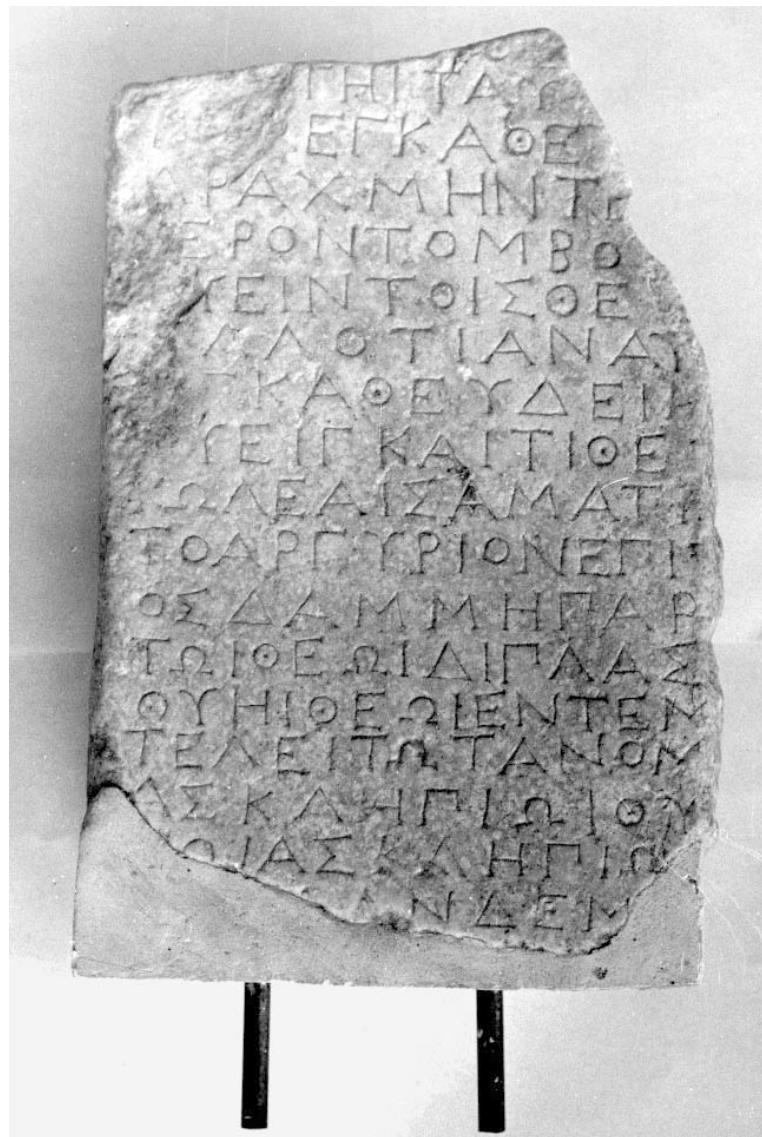 ΓΗΙΤΑΩ
ΕΓΚΑΘΕ
ΡΑΧΜΗΝΤ
ΕΡΟΝΤΟΜΒΟ
ΕΙΝΤΟΙΣΘΕ
ΛΛΟΤΙΑΝΑ
ΚΑΘΕΥΔΕΙ
ΕΙΓΚΑΙΤΙΘΕ
ΩΛΕΑΙΣΑΜΑΤ
ΤΟΑΡΓΥΡΙΟΝΕΠΙ
ΟΣΔΑΜΜΗΠΑΡ
ΤΩΙΘΕΩΙΔΙΠΛΑΣ
ΘΥΗΙΘΕΩΙΕΝΤΕΜ
ΤΕΛΕΙΤΩΤΑΝΟΜ
ΑΣΚΛΗΠΙΩΙΘΥ
ΩΙΑΣΚΛΗΠΙΩ
ΑΝΔΕΜ